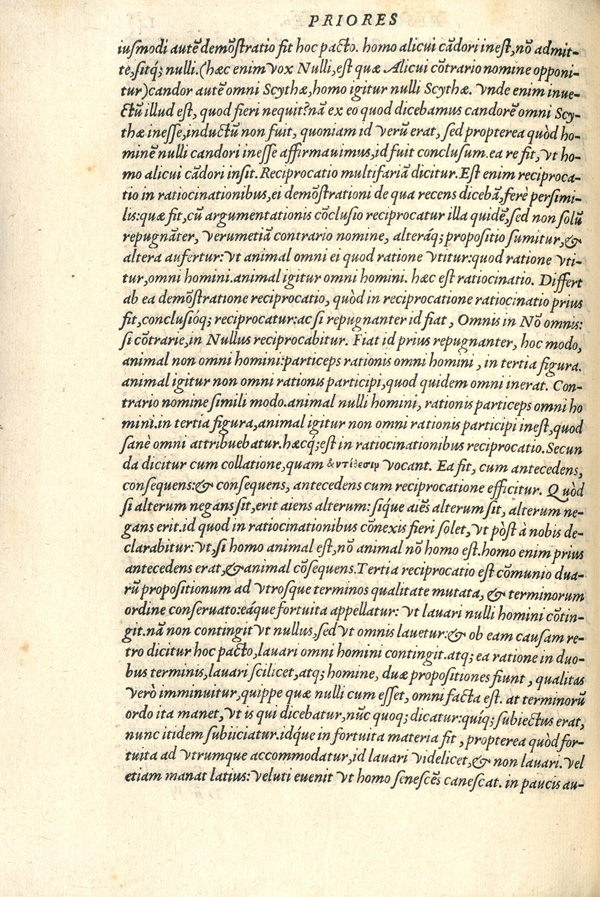 PRIORES
iusmodi autē demōstratio fit hoc pacto. homo alicui cādori inest, nō admit-
te, sitq; nulli. (hæc enim vox Nulli, est quæ Alicui cōtrario nomine opponi-
tur) candor autē omni Scythæ, homo igitur nulli Scythæ. Vnde enim inue-
ctū illud est, quod fieri nequit? nā ex eo quod dicebamus candorē omni Scy-
thæ inesse, inductū non fuit, quoniam id verū erat, sed propterea quòd ho-
minē nulli candori inesse affirmauimus, id fuit conclusum. ea re fit, vt ho-
mo alicui cādori insit. Reciprocatio multifariā dicitur. Est enim reciproca-
tio in ratiocinationibus, ei demōstrationi de qua recens dicebā, ferè persimi-
lis: quæ fit, cū argumentationis cōclusio reciprocatur illa quidē, sed non solū
repugnāter, verumetiā contrario nomine, alteráq; propositio sumitur, &
altera aufertur: vt animal omni ei quod ratione vtitur: quod ratione vti-
tur, omni homini. animal igitur omni homini. hæc est ratiocinatio. Differt
ab ea demōstratione reciprocatio, quòd in reciprocatione ratiocinatio prius
fit, conclusióq; reciprocatur: ac si repugnanter id fiat, Omnis in Nō omnis:
si cōtrarie, in Nullus reciprocabitur. Fiat id prius repugnanter, hoc modo,
animal non omni homini: particeps rationis omni homini, in tertia figura.
animal igitur non omni rationis participi, quod quidem omni inerat. Con-
trario nomine simili modo. animal nulli homini, rationis particeps omni ho
mini. in tertia figura, animal igitur non omni rationis participi inest, quod
sanè omni attribuebatur. hæcq; est in ratiocinationibus reciprocatio. Secun
da dicitur cum collatione, quam ἀντίθεσιν vocant. Ea fit, cum antecedens,
consequens: & consequens, antecedens cum reciprocatione efficitur. Quòd
si alterum negans sit, erit aiens alterum: síque aiēs alterum sit, alterum ne-
gans erit. id quod in ratiocinationibus cōnexis fieri solet, vt pòst à nobis de-
clarabitur: vt, si homo animal est, nō animal nō homo est. homo enim prius
antecedens erat, & animal cōsequens. Tertia reciprocatio est cōmunio dua-
rū propositionum ad vtrosque terminos qualitate mutata, & terminorum
ordine conseruato: eáque fortuita appellatur: vt lauari nulli homini cōtin-
git. nā non contingit vt nullus, sed vt omnis lauetur: & ob eam causam re-
tro dicitur hoc pacto, lauari omni homini contingit. atq; ea ratione in duo-
bus terminis, lauari scilicet, atq; homine, duæ propositiones fiunt, qualitas
verò imminuitur, quippe quæ nulli cum esset, omni facta est. at terminorū
ordo ita manet, vt is qui dicebatur, nūc quoq; dicatur: quíq; subiectus erat,
nunc itidem subiiciatur. idque in fortuita materia fit, propterea quòd for-
tuita ad vtrumque accommodatur, id lauari videlicet, & non lauari. Vel
etiam manat latius: veluti euenit vt homo senescēs canescat. in paucis au-